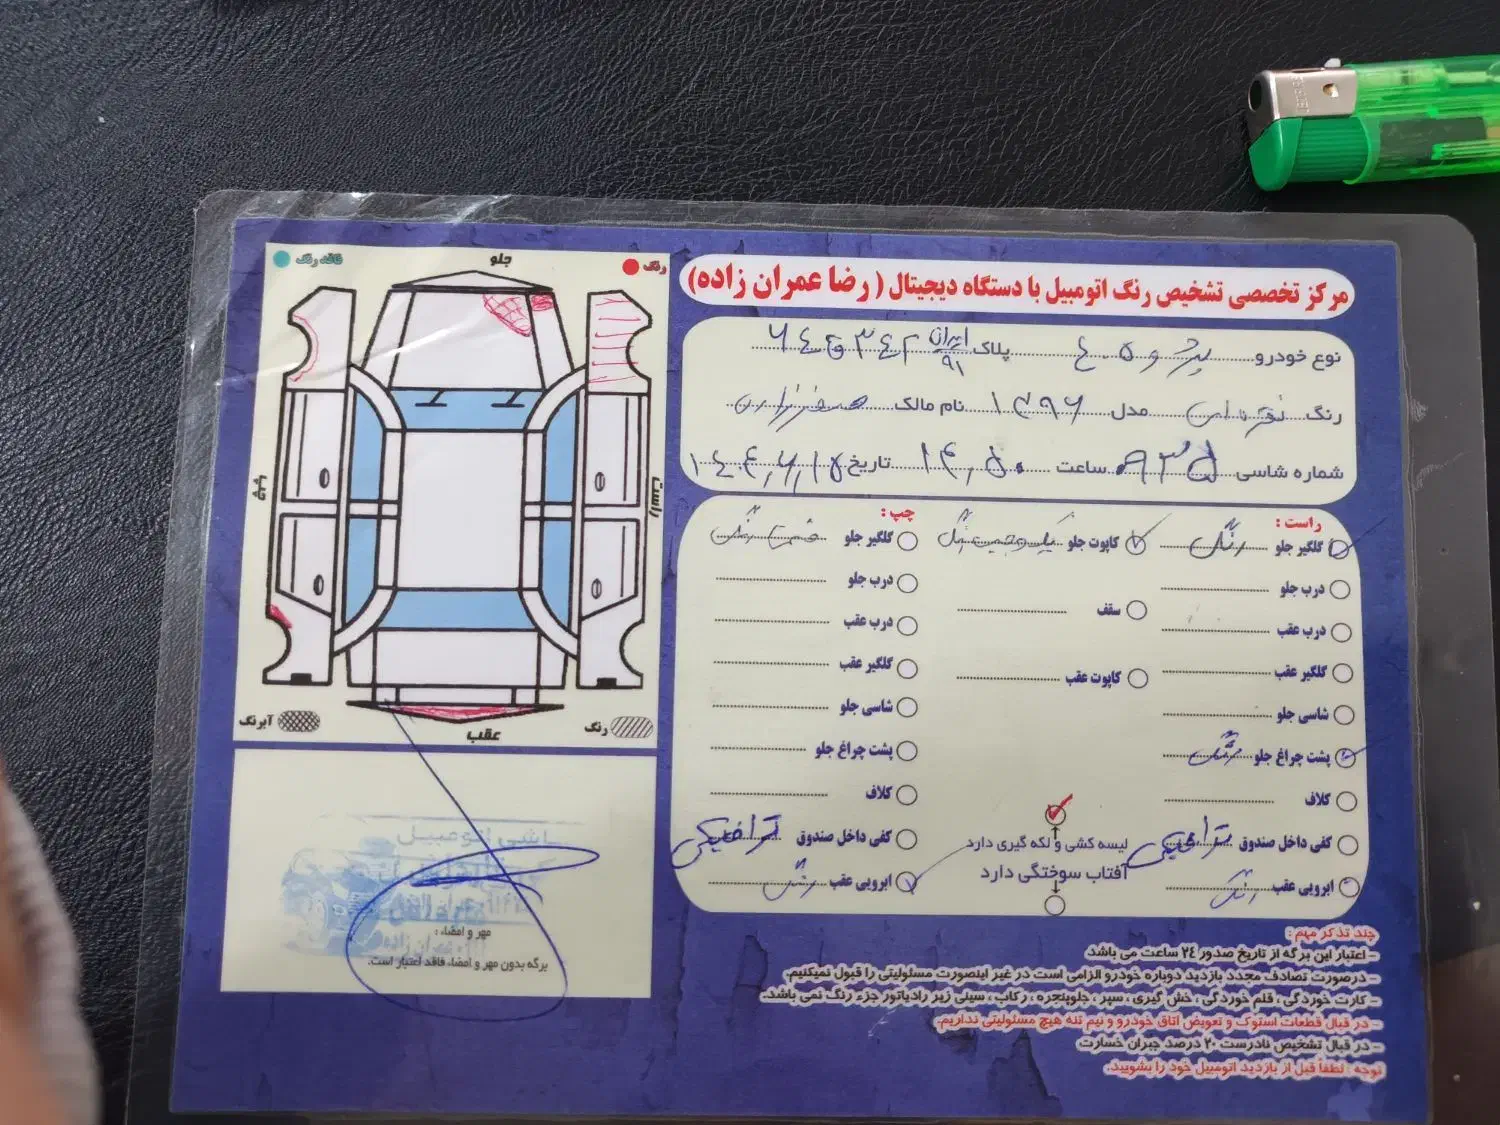 مرکز تخصصی تشخیص رنگ اتومبیل با دستگاه دیجیتال ( رضا عمران زاده)
نوع خودرو پژو ۴۰۵ پلاک ایران ۹۱
رنگ نقره ای مدل ۱۳۹۶ نام مالک
شماره شاسی ساعت ۱۴,۵۰ تاریخ
جلو
رنگ
فاقد رنگ
راست
چپ
عقب
رنگ
آبرنگ
راست :
گلگیر جلو رنگ
درب جلو
درب عقب
گلگیر عقب
شاسی جلو
پشت چراغ جلو رنگ
کلاف
کفی داخل صندوق ترافیکی
ابرویی عقب رنگ
کاپوت جلو یک وجب رنگ
سقف
کاپوت عقب
لیسه کشی و لکه گیری دارد
آفتاب سوختگی دارد
چپ :
گلگیر جلو قسمت رنگ
درب جلو
درب عقب
گلگیر عقب
شاسی جلو
پشت چراغ جلو
کلاف
کفی داخل صندوق ترافیکی
ابرویی عقب رنگ
مهر و امضاء :
برگه بدون مهر و امضاء فاقد اعتبار است.
چند تذکر مهم :
- اعتبار این برگه از تاریخ صدور ٢٤ ساعت می باشد
- درصورت تصادف مجدد بازدید دوباره خودرو الزامی است در غیر اینصورت مسئولیتی را قبول نمیکنیم.
- کارت خوردگی ، قلم خوردگی ، خش گیری ، سپر ، جلوپنجره ، رکاب ، سینی زیر رادیاتور جزء رنگ نمی باشد.
- در قبال قطعات استوک و تعویض اتاق خودرو و نیم تنه هیچ مسئولیتی نداریم.
- در قبال تشخیص نادرست ٢٠ درصد جبران خسارت
توجه : لطفا قبل از بازدید اتومبیل خود را بشویید.